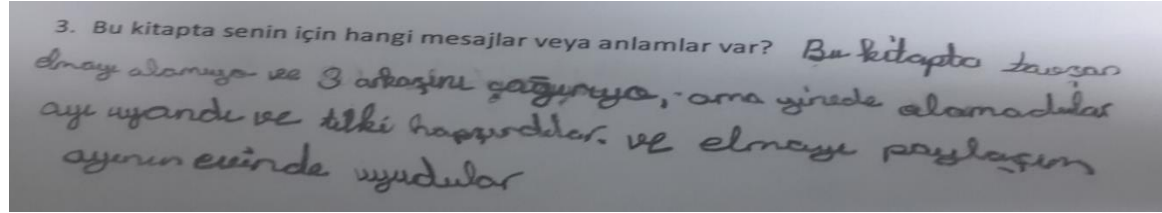 3. Bu kitapta senin için hangi mesajlar veya anlamlar var? Bu kitapta tavşan
elmayı alamıyo ve 3 arkaşını çağırıyo, ama yinede alamadılar
ayı uyandı ve tilki hapşırdılar. ve elmayı paylaşım
ayının evinde uyudular